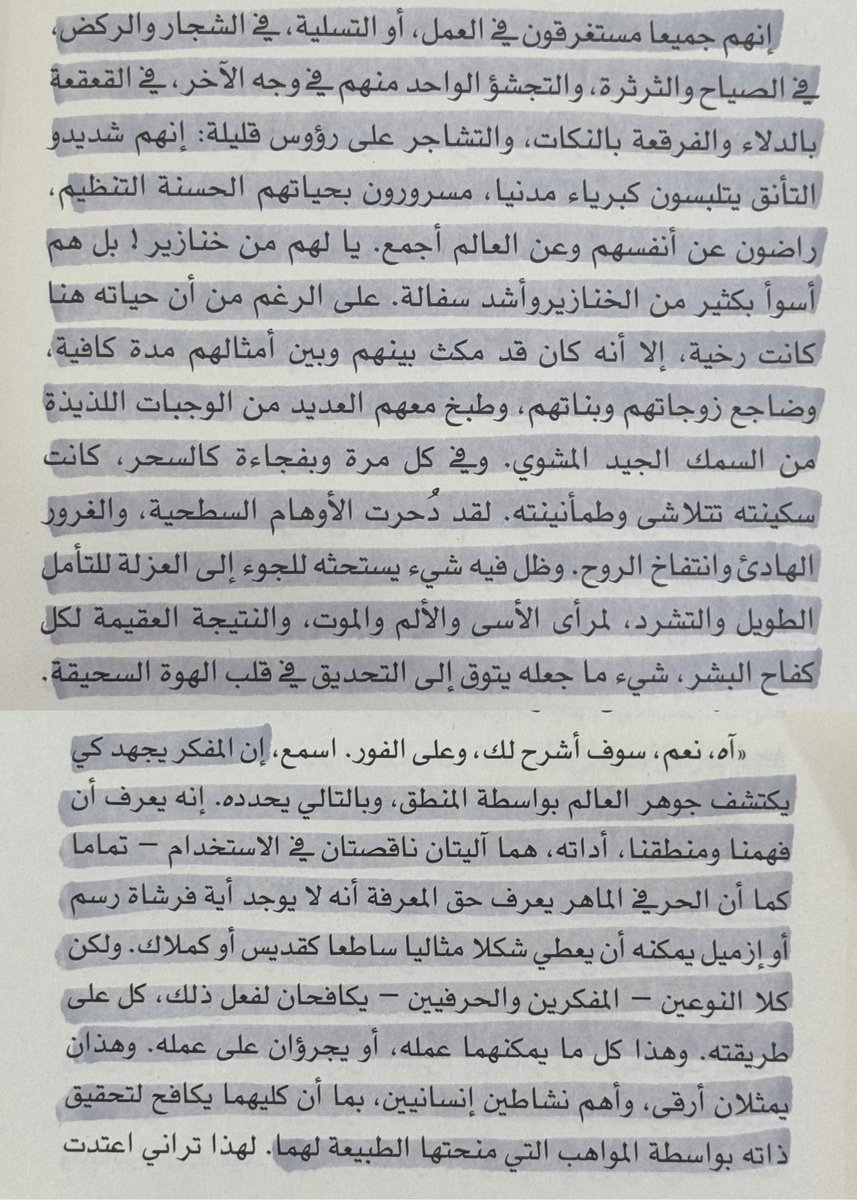 إنهم جميعا مستغرقون في العمل، أو التسلية، في الشجار والركض،
في الصياح والثرثرة، والتجشؤ الواحد منهم في وجه الآخر، في القعقعة
بالدلاء والفرقعة بالنكات، والتشاجر على رؤوس قليلة: إنهم شديدو
التأنق يتلبسون كبرياء مدنيا، مسرورون بحياتهم الحسنة التنظيم،
راضون عن أنفسهم وعن العالم أجمع. يا لهم من خنازير! بل هم
أسوأ بكثير من الخنازير وأشد سفالة. على الرغم من أن حياته هنا
كانت رخية، إلا أنه كان قد مكث بينهم وبين أمثالهم مدة كافية،
وضاجع زوجاتهم وبناتهم، وطبخ معهم العديد من الوجبات اللذيذة
من السمك الجيد المشوي. وفي كل مرة وبفجاءة كالسحر، كانت
سكينته تتلاشى وطمأنينته. لقد دُحرت الأوهام السطحية، والغرور
الهادئ وانتفاخ الروح. وظل فيه شيء يستحثه للجوء إلى العزلة للتأمل
الطويل والتشرد، لمرأى الأسى والألم والموت، والنتيجة العقيمة لكل
كفاح البشر، شيء ما جعله يتوق إلى التحديق في قلب الهوة السحيقة.
«آه، نعم، سوف أشرح لك، وعلى الفور. اسمع، إن المفكر يجهد كي
يكتشف جوهر العالم بواسطة المنطق، وبالتالي يحدده. إنه يعرف أن
فهمنا ومنطقنا، أداته، هما آليتان ناقصتان في الاستخدام – تماما
كما أن الحرفي الماهر يعرف حق المعرفة أنه لا يوجد أية فرشاة رسم
أو إزميل يمكنه أن يعطي شكلا مثاليا ساطعا كقديس أو كملاك. ولكن
كلا النوعين – المفكرين والحرفيين – يكافحان لفعل ذلك، كل على
طريقته. وهذا كل ما يمكنهما عمله، أو يجرؤان على عمله. وهذان
يمثلان أرقى، وأهم نشاطين إنسانيين، بما أن كليهما يكافح لتحقيق
ذاته بواسطة المواهب التي منحتها الطبيعة لهما. لهذا تراني اعتدت